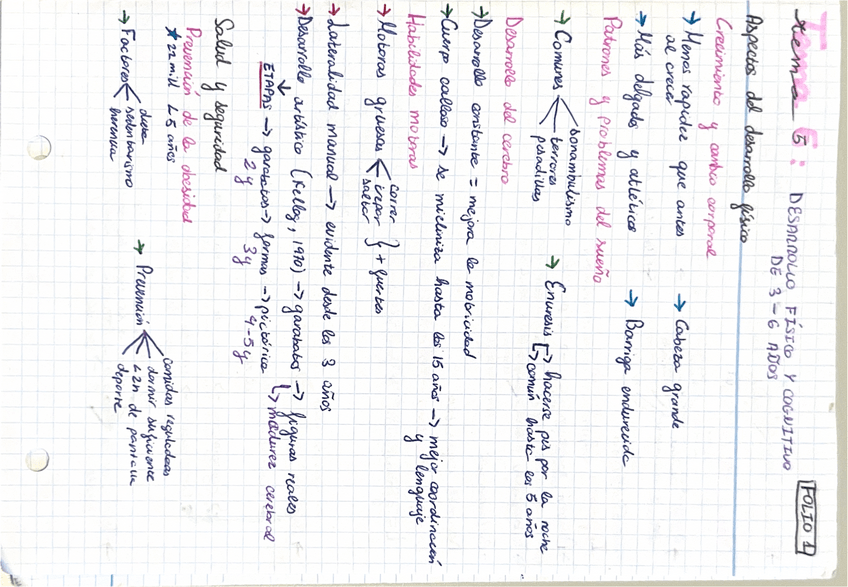 Tema 5: DESARROLLO FÍSICO Y COGNITIVO
DE 3-6 AÑOS
FOLIO 1
Aspectos del desarrollo físico
Crecimiento y cambio corporal
→ Menos rapidez que antes
al crecer
→ Cabeza grande
→ Más delgados y atléticos
→ Barriga endurecida
Patrones y problemas del sueño
→ Comunes
sonambulismo
terrores
pesadillas
→ Enuresis → hacerse pis por la noche
→ común hasta los 5 años
Desarrollo del cerebro
→ Desarrollo constante = mejora la motricidad
→ Cuerpo calloso → se mieliniza hasta los 15 años → mejor coordinación
y lenguaje
Habilidades motoras
→ Motoras gruesas
correr
trepar
saltar
} + fuertes
→ Lateralidad manual → evidente desde los 3 años
→ Desarrollo artístico (Kellog, 1970) → garabatos → figuras reales
↳ madurez cerebral
ETAPAS → garabatos → formas → pictórica
2y 3y 4-5y
Salud y seguridad
Prevención de la obesidad
*22 mill < 5 años
→ Factores
dieta
sedentarismo
herencia
→ Prevención
comidas reguladoras
dormir suficiente
< 2h de pantalla
deporte